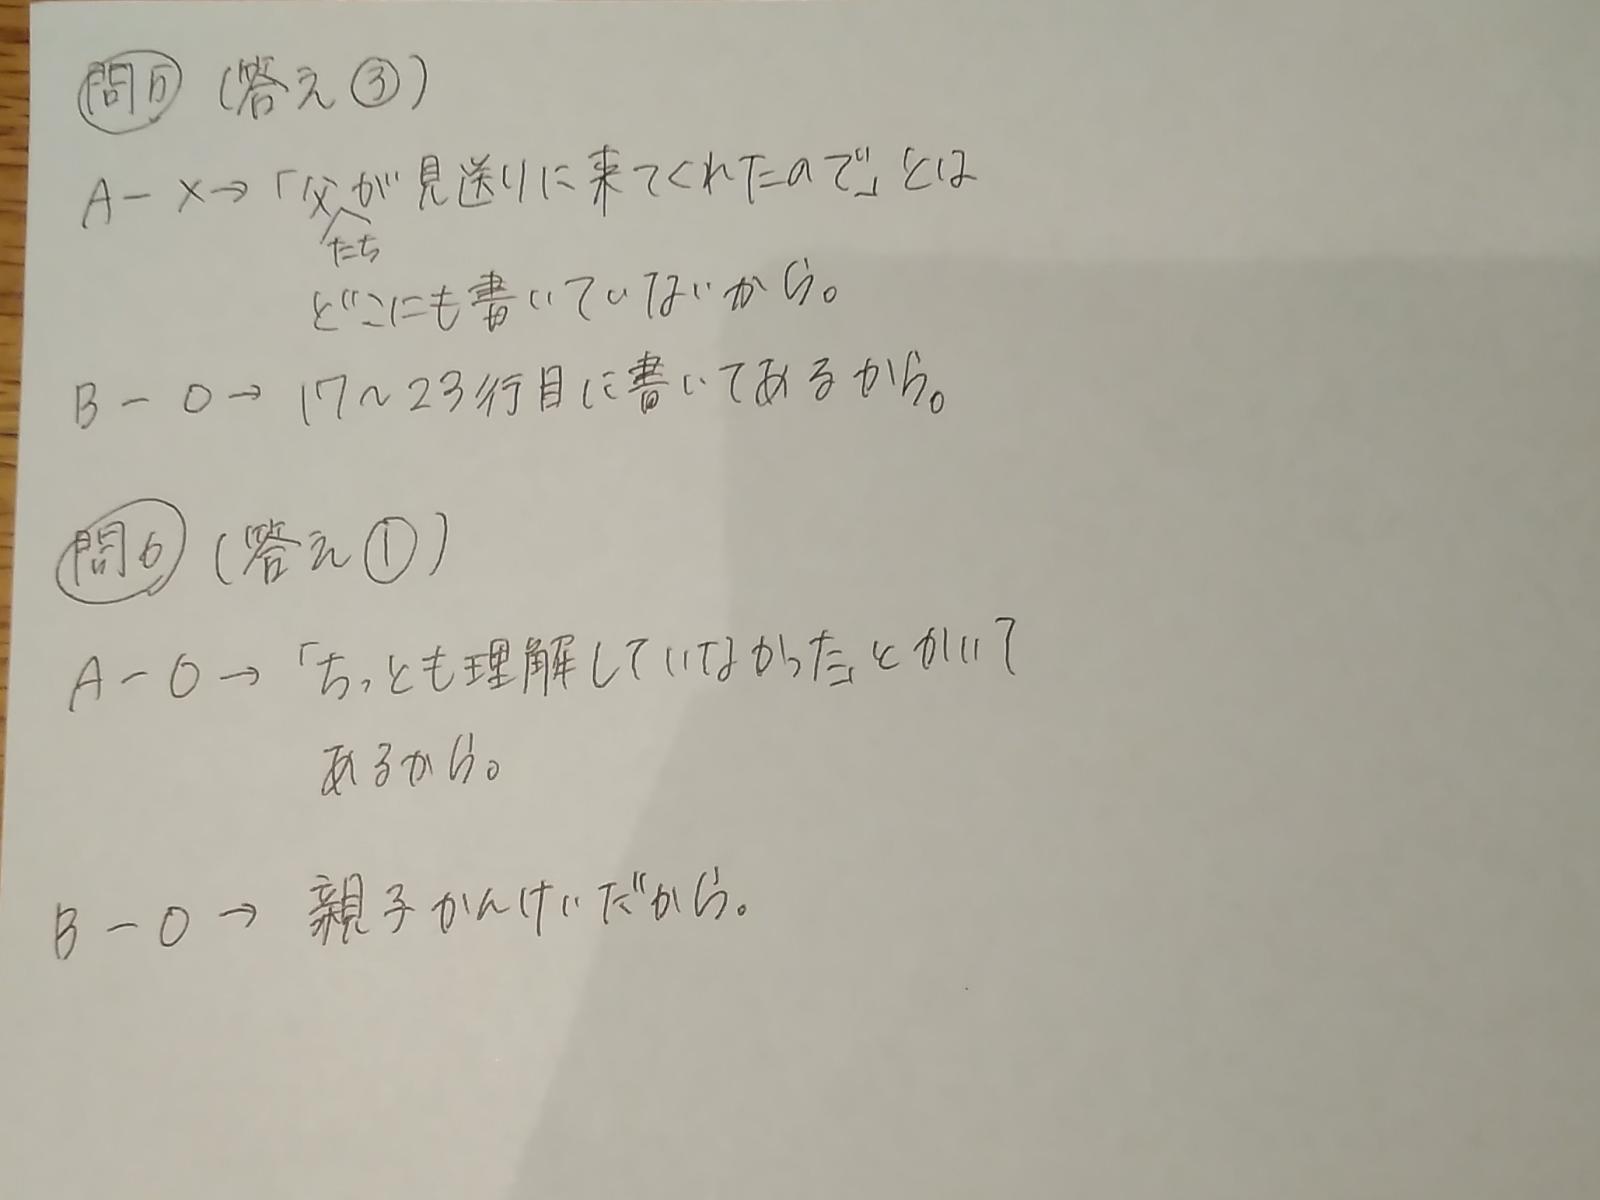 問5 (答え③)
A－×→「父たちが見送りに来てくれたので」とは
どこにも書いていないから。
B－○→17～23行目に書いてあるから。
問6 (答え①)
A－○→「ちっとも理解していなかった」とかいて
あるから。
B－○→親子かんけいだから。